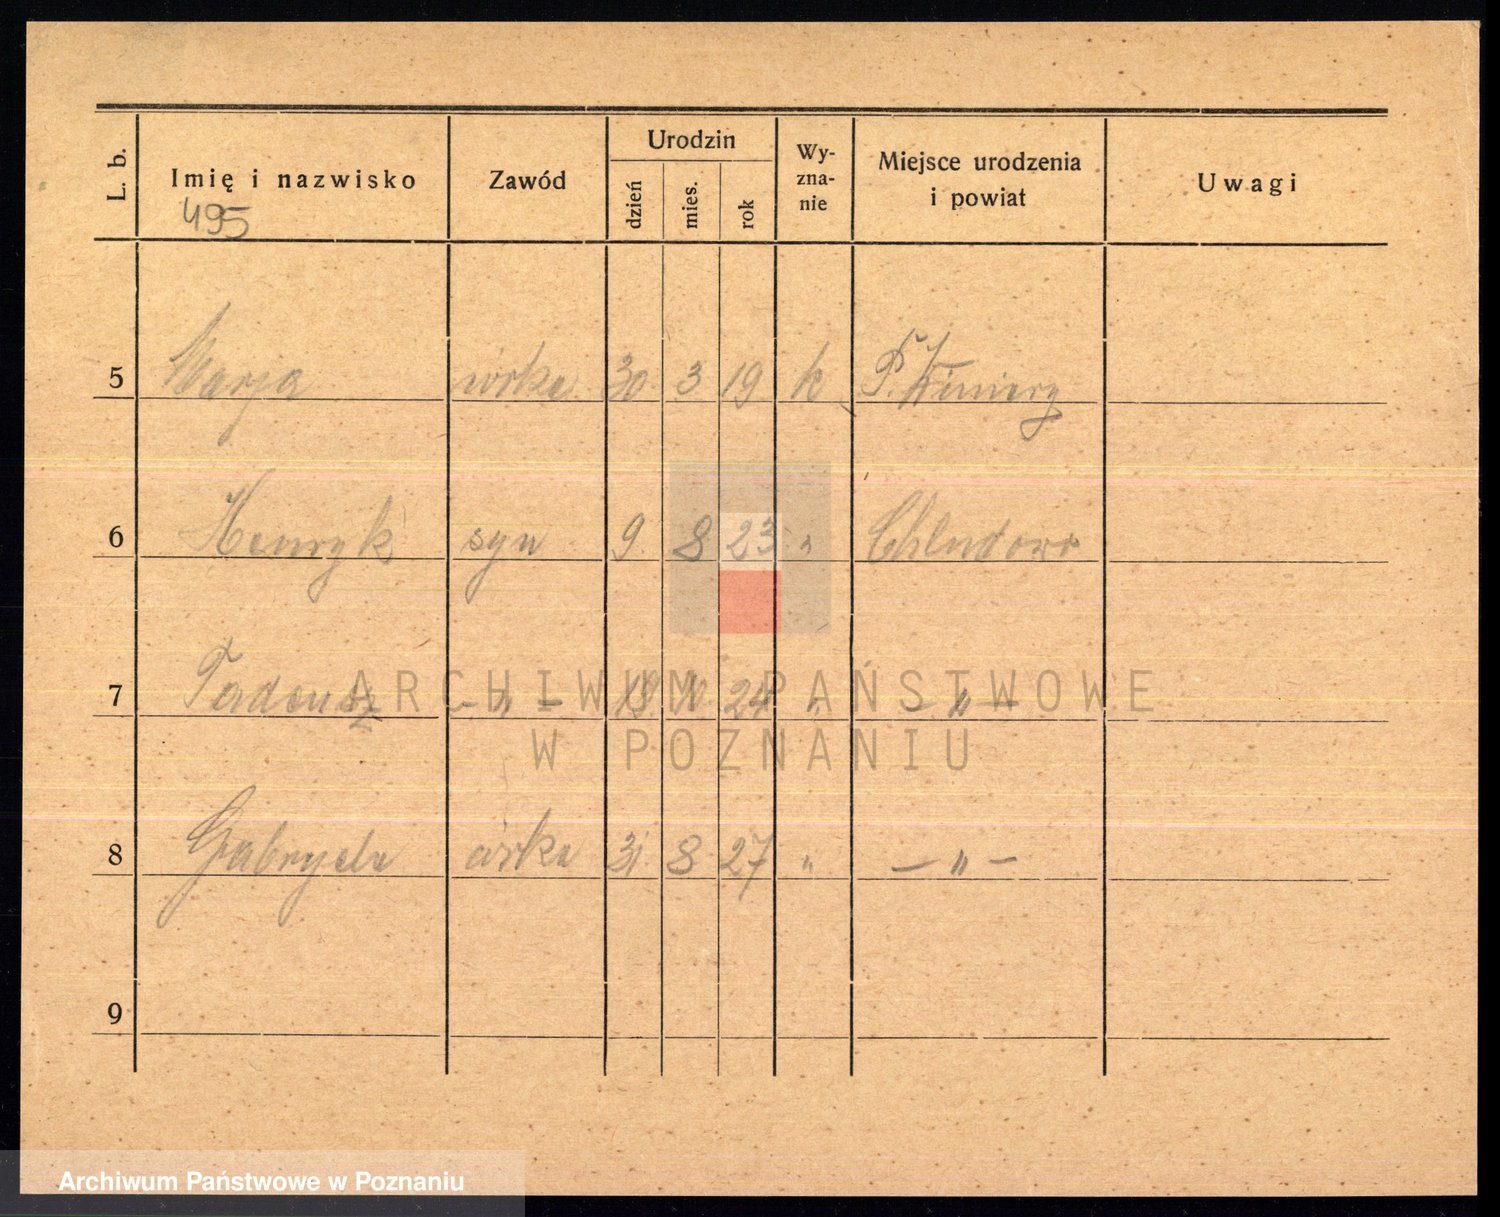 L. b. Imię i nazwisko Zawód Urodzin dzień mies. rok Wy-zna-nie Miejsce urodzenia i powiat Uwagi
495
5 Marja córka 30. 3 19 k
6 Henryk syn 9. 8 23 " Chludowo
7 Tadeusz - " - 24 " - " -
8 Gabryela córka 31. 8 27 " - " -
9
ARCHIWUM PAŃSTWOWE
W POZNANIU
Archiwum Państwowe w Poznaniu